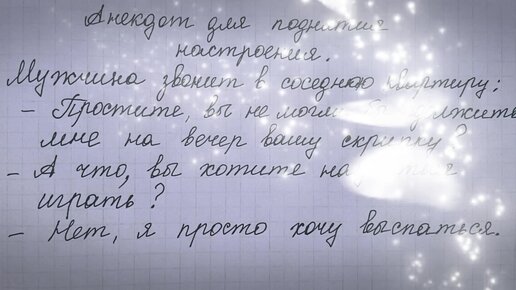 Анекдот для поднятия
настроения.
Мужчина звонит в соседнюю квартиру:
– Простите, вы не могли
мне на вечер вашу скрипку?
– А что, вы хотите
играть?
– Нет, я просто хочу выспаться.